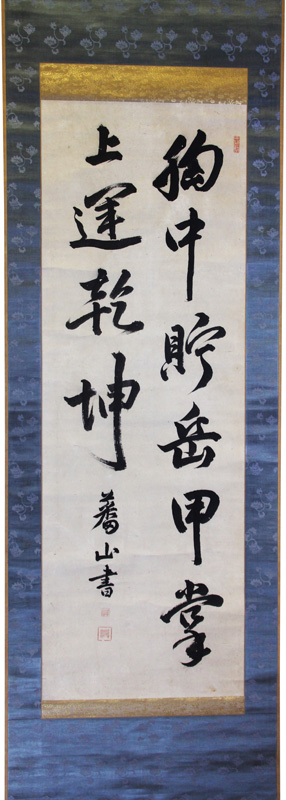 胸中貯岳甲掌
上運乾坤
蕃山書